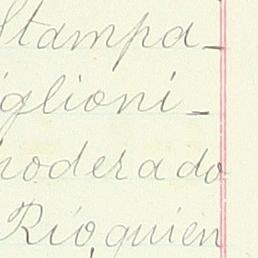 Stampa-
glioni-
poderado
Río, quien